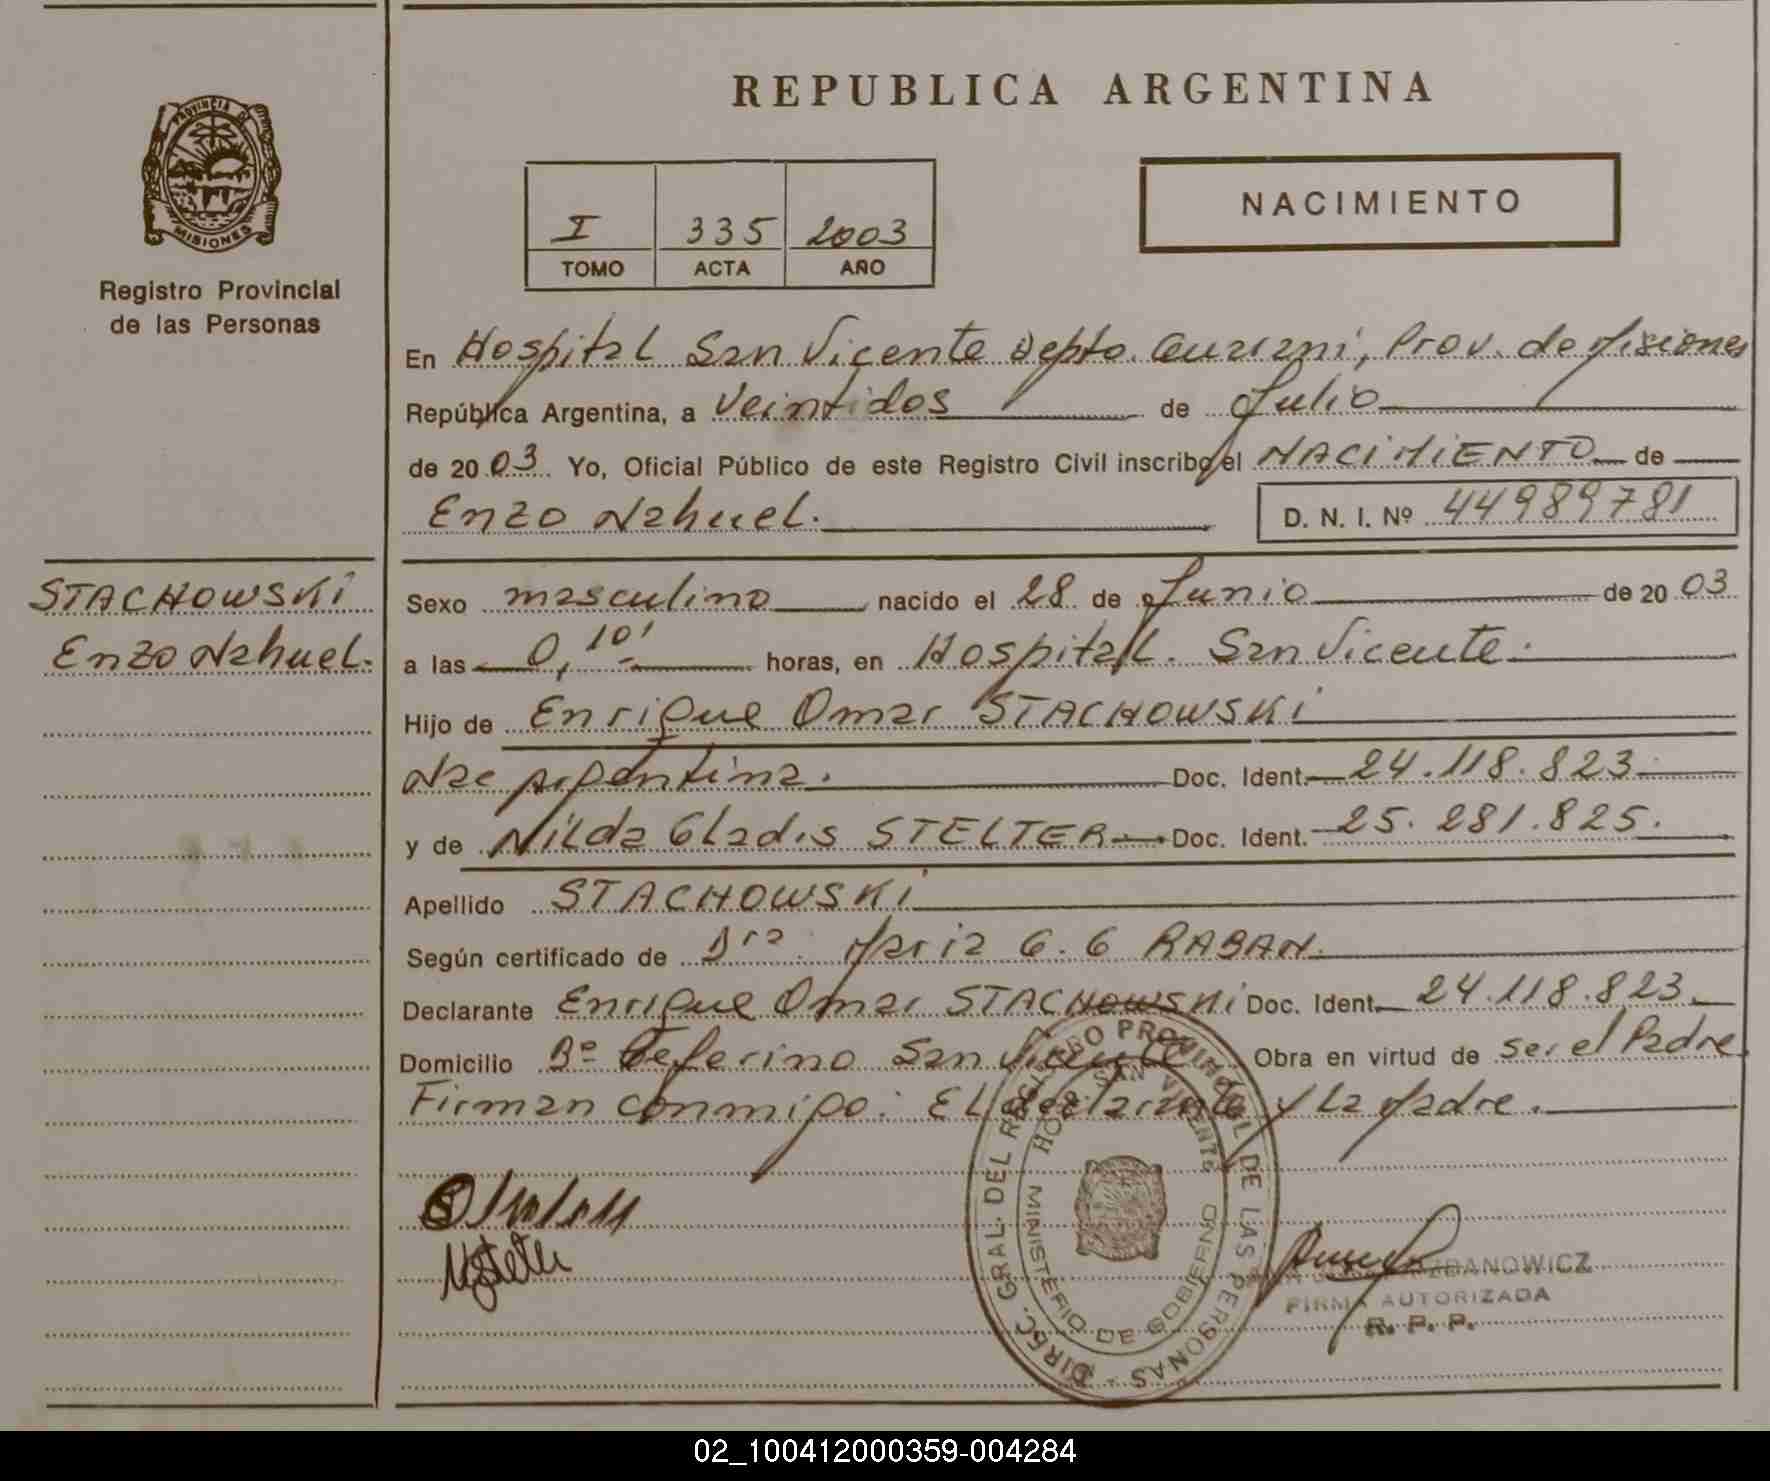 REPUBLICA ARGENTINA
PROVINCIA DE
MISIONES
Registro Provincial
de las Personas
I 335 2003
TOMO ACTA AÑO
NACIMIENTO
En Hospital San Vicente Depto. Guarani, Prov. de Misiones
República Argentina, a Veintidos de Julio
de 2003. Yo, Oficial Público de este Registro Civil inscribo el NACIMIENTO de
Enzo Nahuel.
D. N. I. Nº 44989781
STACHOWSKI
Enzo Nahuel.
Sexo masculino nacido el 28 de Junio de 2003
a las 0,10' horas, en Hospital San Vicente.
Hijo de Enrique Omar STACHOWSKI
Nac Argentina. Doc. Ident. 24.118.823.
y de Nilda Gladis STELTER Doc. Ident. 25.281.825.
Apellido STACHOWSKI
Según certificado de Dra. Maria G. G RABAN.
Declarante Enrique Omar STACHOWSKI Doc. Ident. 24.118.823.
Domicilio Bº Ceferino San Vicente Obra en virtud de ser el Padre.
Firman conmigo: El declarante y La Madre.
DIREC. GRAL. DEL REGISTRO PROVINCIAL DE LAS PERSONAS -
SAN VICENTE
MINISTERIO DE GOBIERNO
FIRMA AUTORIZADA
R. P. P.
02_100412000359-004284